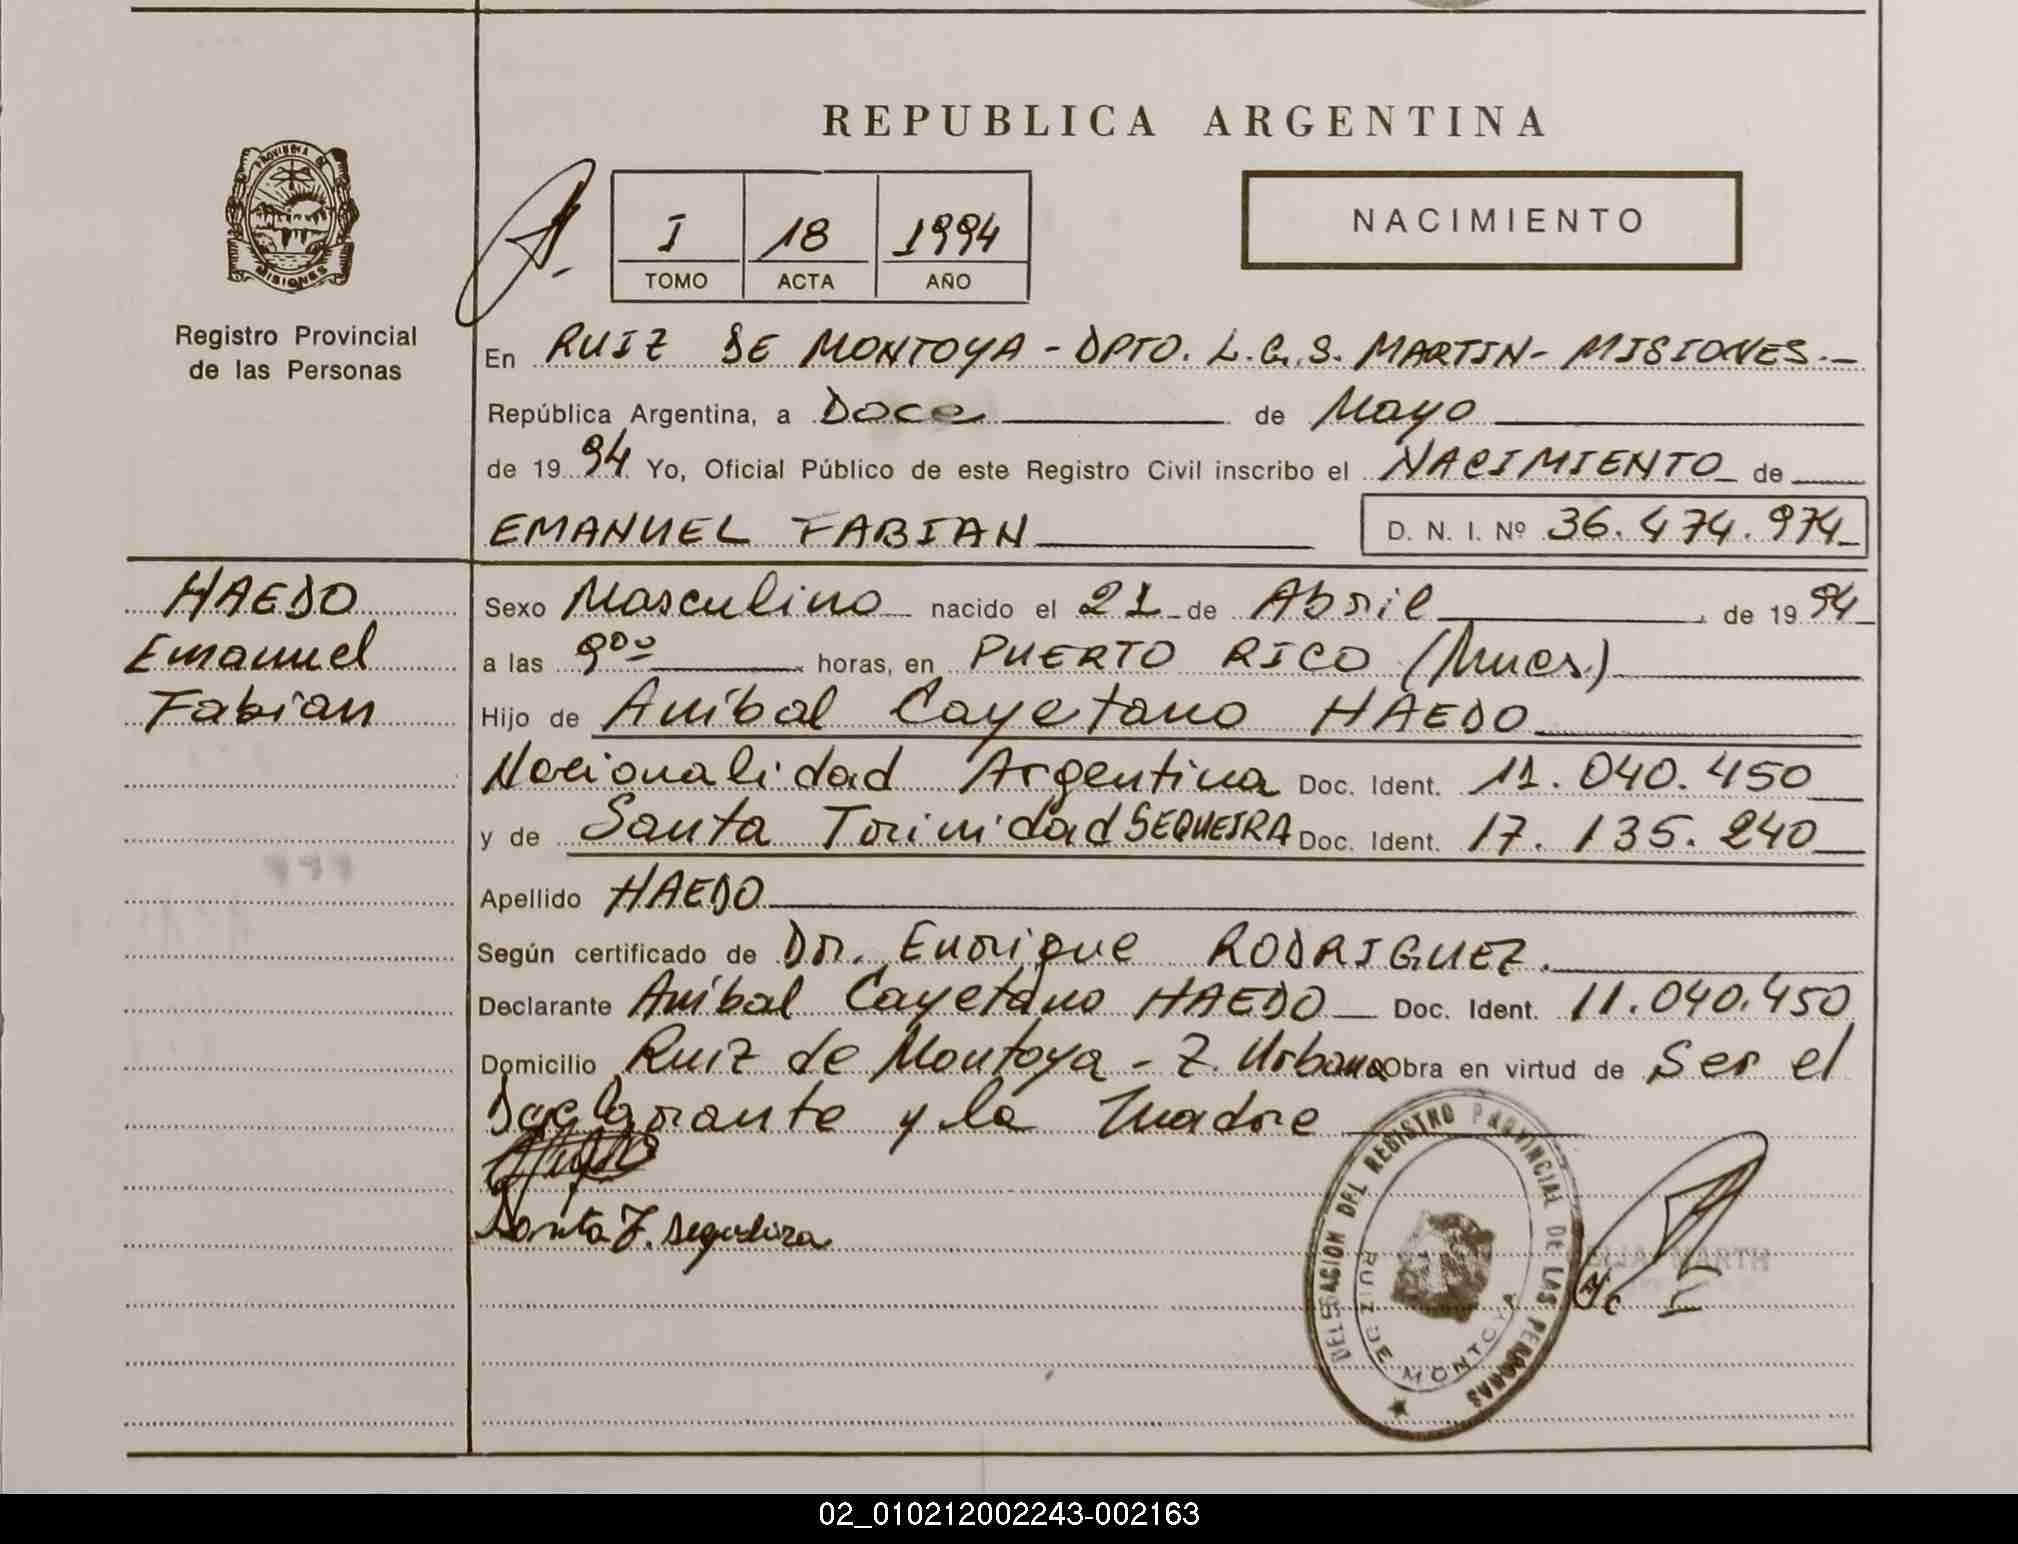 REPUBLICA ARGENTINA
PROVINCIA DE
MISIONES
Registro Provincial
de las Personas
I 18 1994
TOMO ACTA AÑO
NACIMIENTO
En RUIZ DE MONTOYA - DPTO. L.G.S. MARTIN - MISIONES.-
República Argentina, a Doce de Mayo
de 19 94 Yo, Oficial Público de este Registro Civil inscribo el NACIMIENTO de
EMANUEL FABIAN D. N. I. Nº 36.474.974
HAEDO
Emanuel
Fabian
Sexo Masculino nacido el 21 de Abril, de 19 94
a las 9⁰⁰ horas, en PUERTO RICO (Mnes.)
Hijo de Aníbal Cayetano HAEDO
Nacionalidad Argentina Doc. Ident. 11.040.450
y de Santa Trinidad SEQUEIRA Doc. Ident. 17.135.240
Apellido HAEDO
Según certificado de Dr. Enrique RODRIGUEZ.
Declarante Aníbal Cayetano HAEDO Doc. Ident. 11.040.450
Domicilio Ruiz de Montoya - Z. Urbana Obra en virtud de Ser el
Declarante y la Madre
Santa T. Sequeira
DELEGACION DEL REGISTRO PROVINCIAL DE LAS PERSONAS
RUIZ DE MONTOYA
02_010212002243-002163